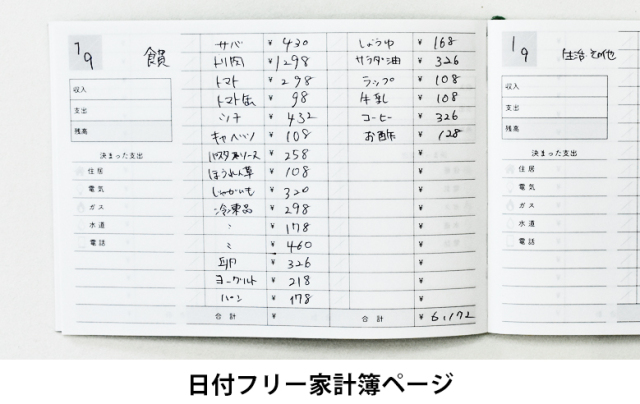 1/9 食費
収入
支出
残高
決まった支出
住居
電気
ガス
水道
電話
サバ ¥ 430
トリ肉 ¥ 1298
トマト ¥ 298
トマト缶 ¥ 98
ツナ ¥ 432
キャベツ ¥ 108
パスタ用ソース ¥ 258
ほうれん草 ¥ 108
じゃがいも ¥ 320
冷凍品 ¥ 298
〃 ¥ 178
〃 ¥ 460
卵 ¥ 326
ヨーグルト ¥ 218
パン ¥ 178
合計 ¥
しょうゆ ¥ 168
サラダ油 ¥ 326
ラップ ¥ 108
牛乳 ¥ 108
コーヒー ¥ 326
お酢 ¥ 128
¥
¥
¥
¥
¥
¥
¥
¥
¥
合計 ¥ 6,172
1/9 生活・その他
収入
支出
残高
決まった支出
住居
電気
ガス
水道
電話
日付フリー家計簿ページ